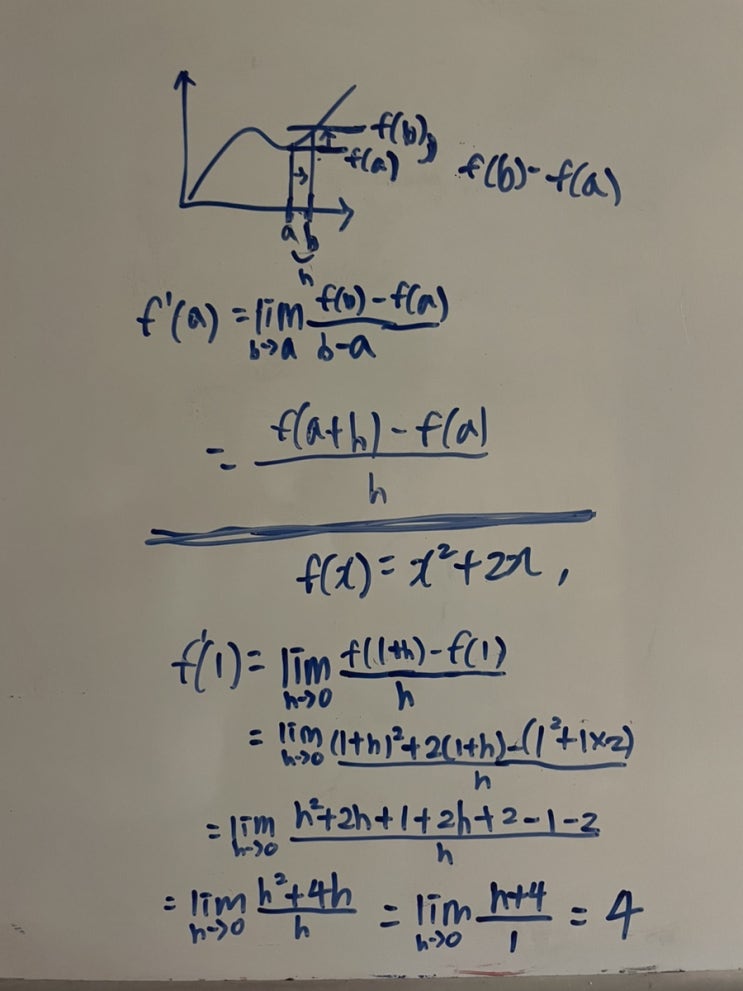 f(b)
f(a)
f(b)-f(a)
a b
h
f'(a) = lim b→a (f(b)-f(a))/(b-a)
= (f(a+h)-f(a))/h
f(x)=x²+2x,
f'(1)= lim h→0 (f(1+h)-f(1))/h
= lim h→0 ((1+h)²+2(1+h)-(1²+1×2))/h
= lim h→0 (h²+2h+1+2h+2-1-2)/h
= lim h→0 (h²+4h)/h = lim h→0 (h+4)/1 = 4